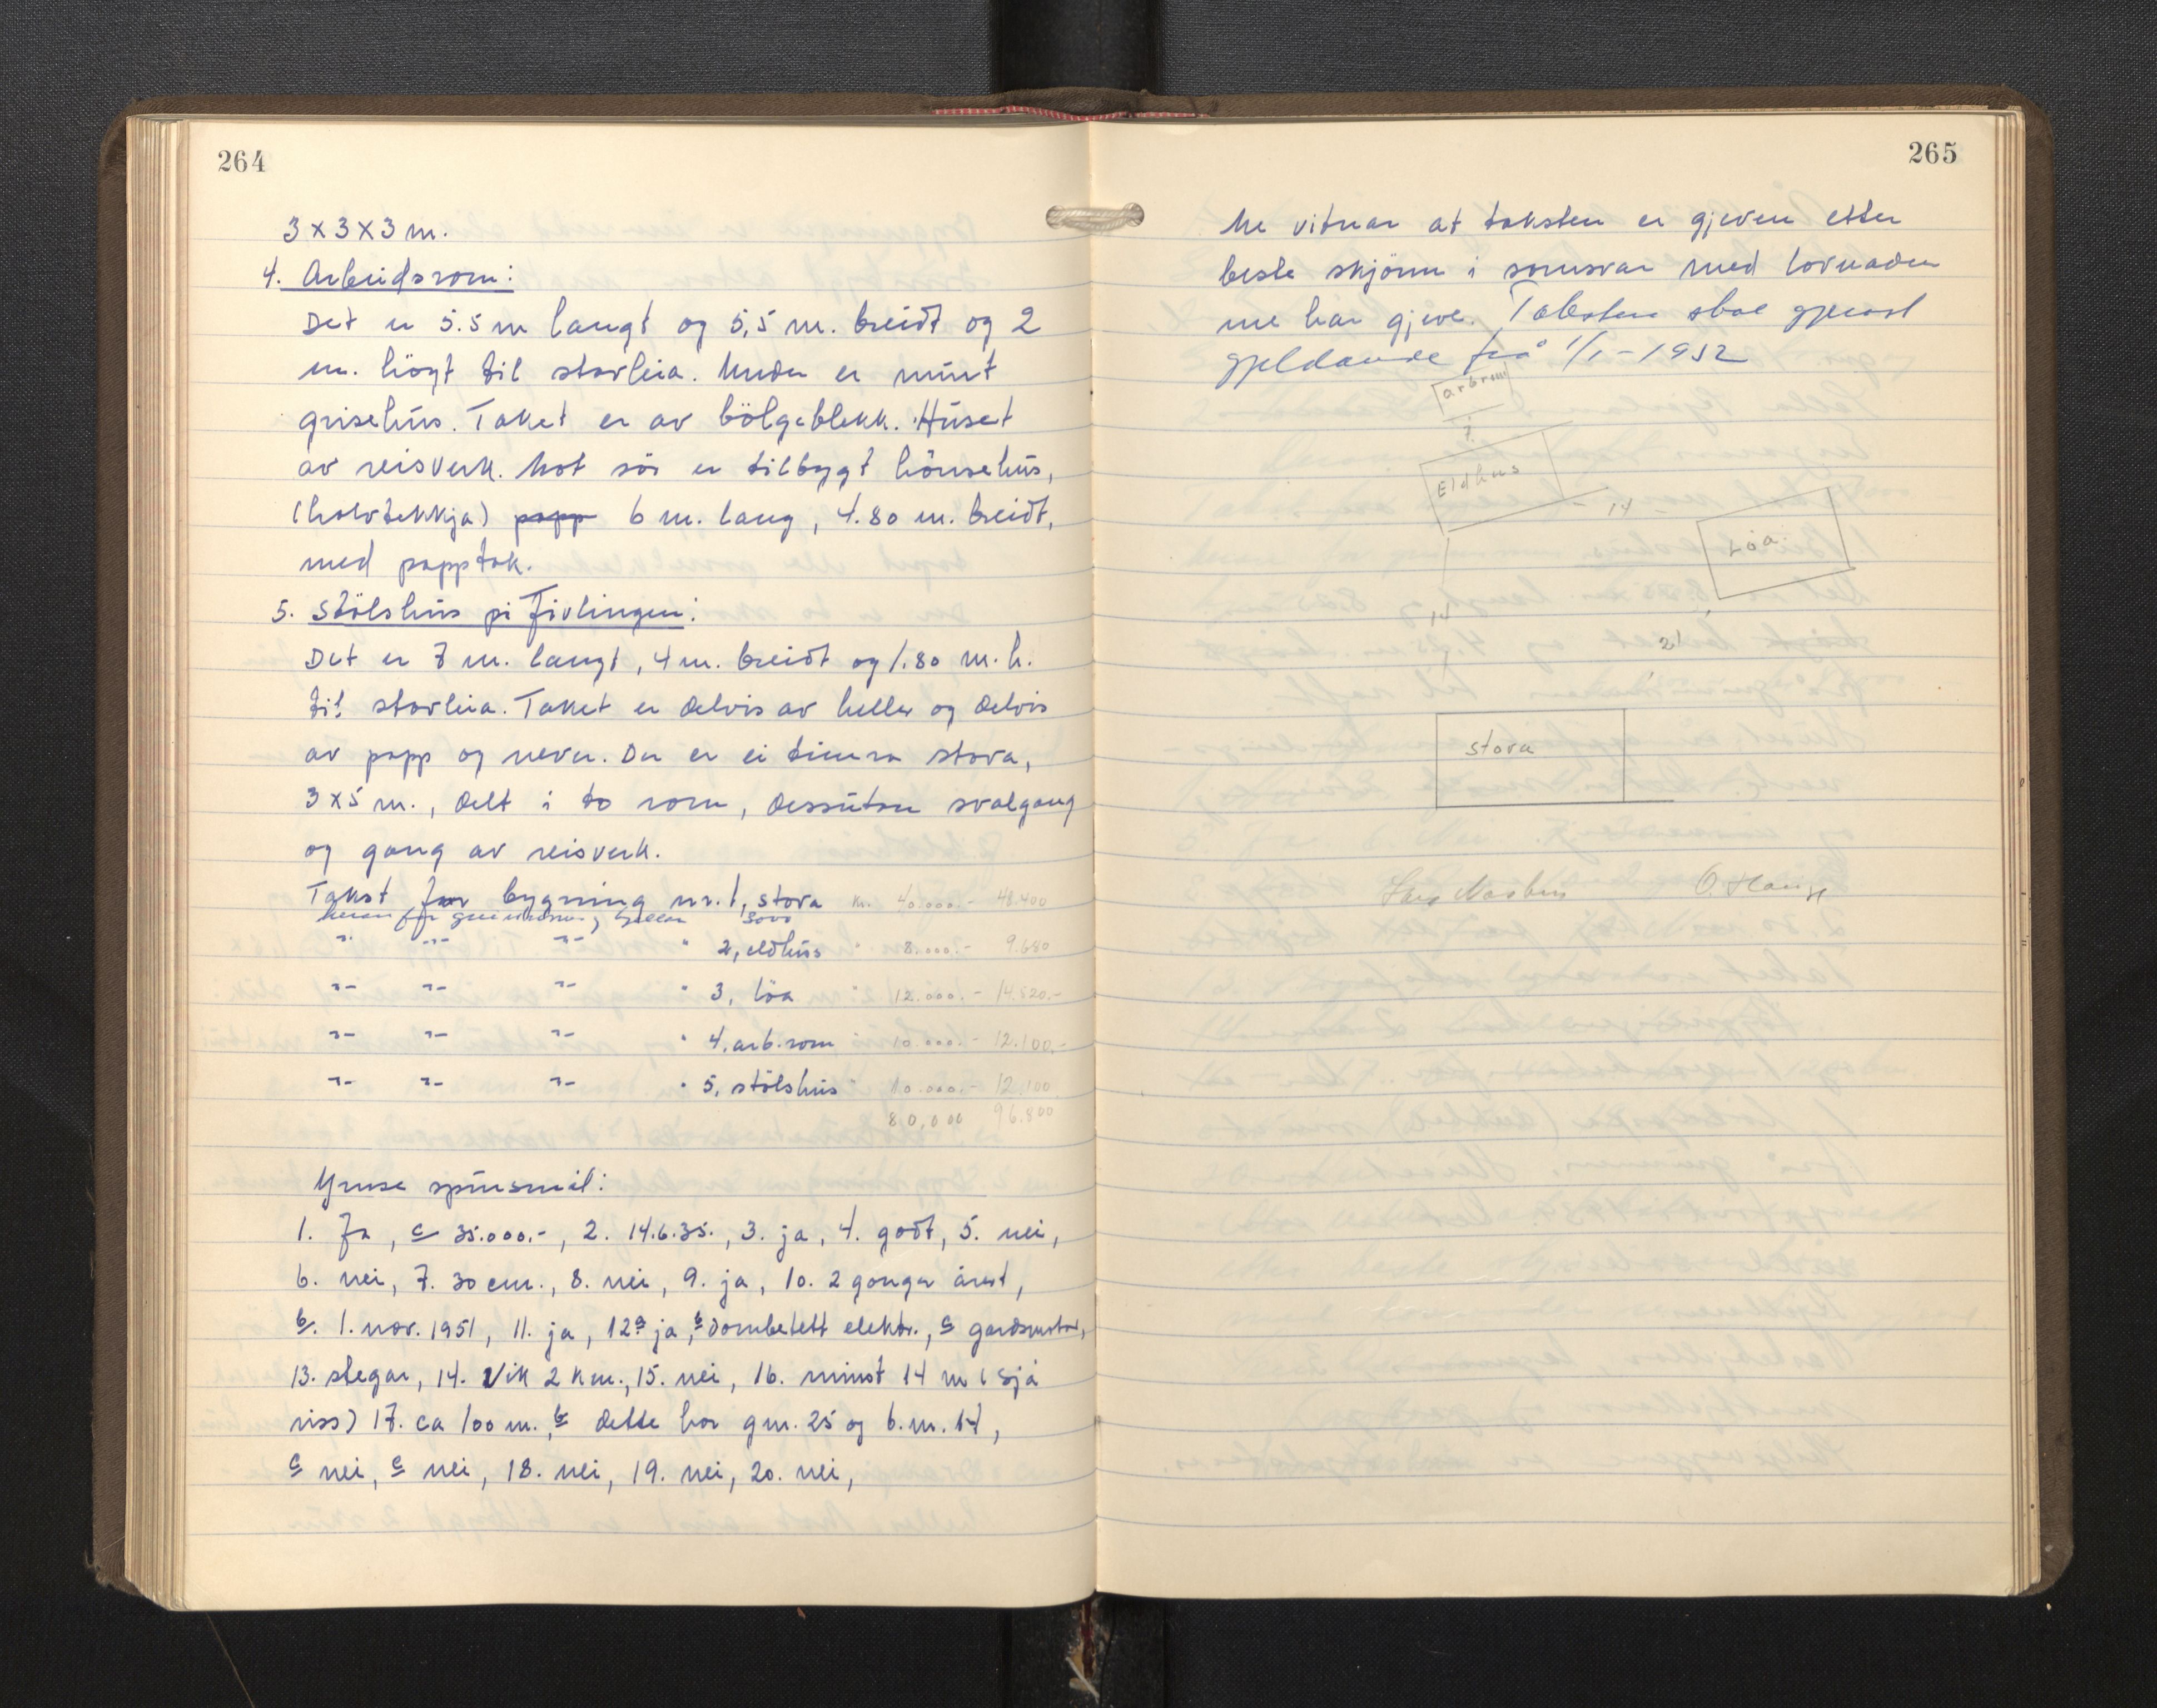 264
3 x 3 x 3 m.
4. Arbeidsrom:
Det er 5.5 m langt og 5,5 m. breidt og 2
m. högt til stavleia. Under er murt
grisehus. Taket er av bölgeblekk. Huset
av reisverk. Mot sör er tilbygt hönsehus,
(halvtekkja) papp 6 m. lang, 4.80 m. breidt,
med papptak.
5. Stölshus på Fivlingen:
Det er 7 m. langt, 4 m. breidt og 1.80 m. h.
til stavleia. Taket er delvis av heller og delvis
av papp og never. Der er ei timra stova,
3 x 5 m., delt i to rom, dessutan svalgang
og gang av reisverk.
Takst for bygning nr. 1, stova kr. 40.000.- 48.400
herav for grunnmur, 5000
"- "- "- " 2, eldhus " 8.000.- 9.680
"- "- "- " 3, löa " 12.000.- 14.520.-
"- "- "- " 4. arb.rom " 10.000.- 12.100.-
"- "- "- " 5, stölshus " 10.000.- 12.100
80,000 96.800
Ymse spursmål:
1. Ja, c 35.000.-, 2. 14.6.35., 3. ja, 4. godt, 5. nei,
6. nei, 7. 30 cm., 8. nei, 9. ja, 10. 2 gonger året,
b. 1. nov. 1951, 11. ja, 12a ja, b dombetett elektr., c gardsmotor,
13. stegar, 14. Vik 2 km., 15. nei, 16. minst 14 m (sjå
riss) 17. ca 100 m., b dette har gm. 25 og b.m. 17,
c nei, e nei, 18. nei, 19. nei, 20. nei,
265
Me vitnar at taksten er gjeven etter
beste skjönn i samsvar med lovnaden
me har gjeve. Taksten skal gjerast
gjeldande frå 1/1-1952
arbrom
7.
Eldhus
- 14 -
Löa
14
21
stova
O. Hauge